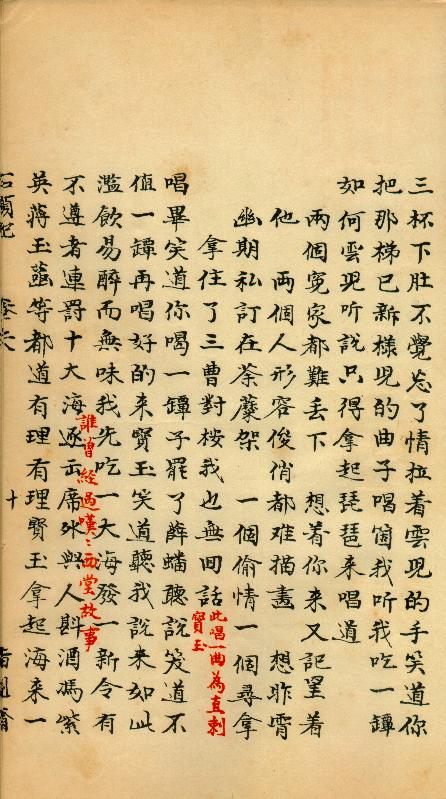 三杯下肚不覺忘了情拉着雲兒的手笑道你
把那梯已新樣兒的曲子唱箇我听我吃一罈
如何雲兒听說只得拿起琵琶来唱道
兩個冤家都難丢下 想着你来又記㞷着
他 兩個人形容俊俏都难描畫 想昨宵
幽期私訂在荼蘼架 一個偷情一個尋拿
拿住了三曹對桉我也無回話
此唱一曲為直刺
寳玉
唱畢笑道你喝一罈子罷了薛蟠聽說笑道不
值一罈再唱好的来寳玉笑道聽我說来如此
濫飲易醉而無味我先吃一大海發一新令有
誰曾經過嘆〻西堂故事
不遵者連罰十大海逐出席外與人斟酒馮紫
英蒋玉菡等都道有理有理寳玉拿起海来一
石頭記 十